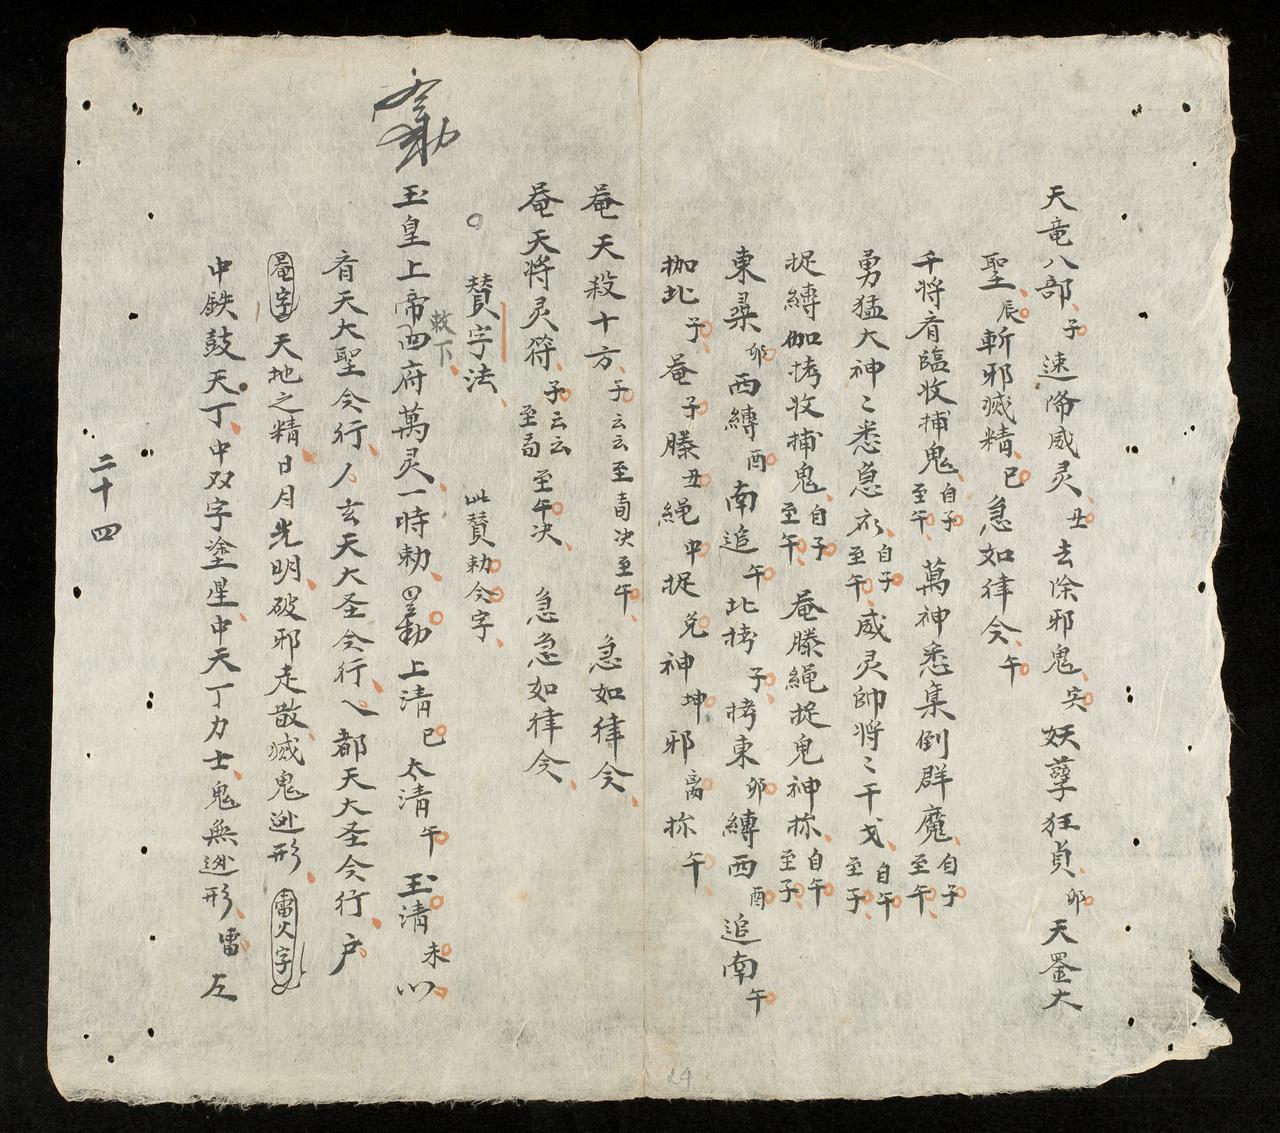 天竜八部子速降威灵丑去除邪鬼寅妖孽狂貞卯天罡大
聖辰斬邪滅精巳急如律令午
千将斉臨收捕鬼自子至午萬神悉集倒群魔自子至午
勇猛大神〻悉急自子至午威灵帥将〻干戈自午至子
捉縛伽拷收捕鬼自子至午菴縢繩捉鬼神自午至子
東卯西縛酉南追午北拷子拷東卯縛西酉追南午
枷北子菴子縢丑繩中捉兌神坤邪离午
菴天殺十方子云云至决至午急如律令
菴天将灵符子云云至至午决急急如律令
賛字法 此賛勅令字
敕下
玉皇上帝四府萬灵一時勅上清巳太清午玉清未
天大聖令行人玄天大圣令行都天大圣令行户
菴字天地之精日月光明破邪走散滅鬼形雷火字
中鉄鼓天丁中双字塗星中天丁力士鬼無形雷左
二十四
24